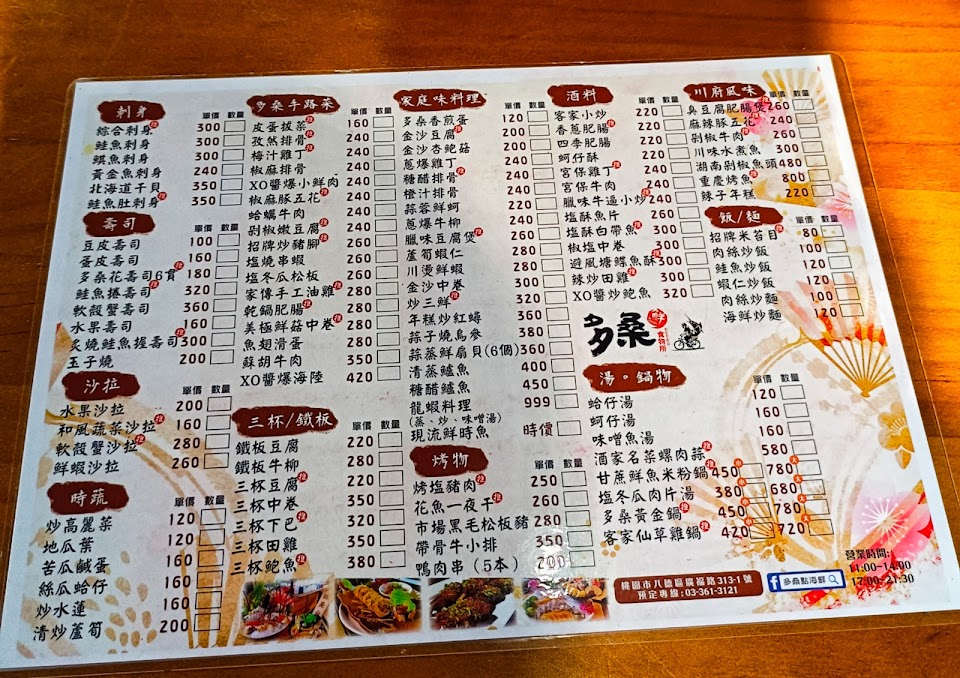 刺身 單價 數量
綜合刺身 300
鮭魚刺身 300
黃金魚刺身
北海道干貝 350
鮭魚肚刺身 350
壽司 單價 數量
豆皮壽司 100
蛋皮壽司 160
多桑花壽司6貫 180
鮭魚捲壽司 320
軟殼蟹壽司 360
水果壽司 160
炙燒鮭魚握壽司 300
玉子燒 200
沙拉 單價 數量
水果沙拉 200
和風蔬菜沙拉 160
軟殼蟹沙拉 280
鮮蝦沙拉 260
時蔬 單價 數量
炒高麗菜 120
地瓜葉 120
苦瓜鹹蛋 160
絲瓜蛤仔 160
炒水蓮 160
清炒蘆筍 200
多桑手路菜 單價 數量
皮蛋拔菜 160
孜然排骨 240
梅汁雞丁 240
椒麻排骨 240
XO醬爆小鮮肉 240
椒麻豚五花 240
蛤蠣牛肉
剁椒嫩豆腐
招牌炒豬腳
塩燒串蝦
塩冬瓜松板
家傳手工油雞
乾鍋肥腸
美極鮮菇中卷
魚翅滑蛋
蘇胡牛肉 350
XO醬爆海陸 420
三杯/鐵板 單價 數量
鐵板豆腐 220
鐵板牛柳 280
三杯豆腐 220
三杯中卷 350
三杯下巴 320
三杯田雞 350
三杯鮑魚 380
家庭味料理 單價 數量
多桑香煎蛋 120
金沙豆腐 200
金沙杏鮑菇 200
蔥爆雞丁 240
糖醋排骨 240
橙汁排骨 240
蒜蓉鮮蚵 240
蔥爆牛柳 240
臘味豆腐煲 260
蘆筍蝦仁 300
川燙鮮蝦 300
金沙中卷 300
炒三鮮 320
年糕炒紅蟳
蒜子燒烏參 380
蒜蒸鮮扇貝(6個) 360
清蒸鱸魚 400
糖醋鱸魚 450
龍蝦料理 999
(蒸、炒、味噌湯)
現流鮮時魚 時價
烤物 單價 數量
烤塩豬肉 250
花魚一夜干 260
市場黑毛松板豬 280
帶骨牛小排 350
鴨肉串(5本) 200
酒料 單價 數量
客家小炒 220
香蔥肥腸 220
四季肥腸 220
蚵仔酥 220
宮保雞丁 240
宮保牛肉 240
臘味牛逼小炒 240
塩酥魚片 260
塩酥白帶魚 300
椒塩中卷 300
避風塘鰈魚酥 300
辣炒田雞 300
XO醬炒鮑魚 320
川府風味 單價 數量
臭豆腐肥腸煲 260
麻辣豚五花 240
剁椒牛肉 240
川味水煮魚 300
湖南剁椒魚頭 480
重慶烤魚 800
辣子年糕 220
飯/麵 單價 數量
招牌米苔目 80
肉絲炒飯
鮭魚炒飯 120
蝦仁炒飯 120
肉絲炒麵 100
海鮮炒麵 120
多桑
食物所
湯。鍋物 單價 數量
蛤仔湯 120
蚵仔湯 160
味噌魚湯 160
酒家名菜螺肉蒜 560 780
甘蔗鮮魚米粉鍋 450 780
塩冬瓜肉片湯 380 680
多桑黃金鍋 450 780
客家仙草雞鍋 420 720
桃園市八德區廣福路313-1號
預定專線:03-361-3121
多桑點海鮮
營業時間:
11:00~14:00
17:00~21:30